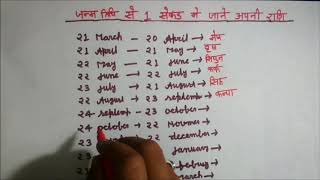 जन्म तिथि से 1 सेकंड में जाने अपनी राशि
21 March - 20 April → मेष
21 April - 21 May → वृष
22 May - 21 June → मिथुन
22 June → 22 July → कर्क
23 July → 21 August → सिंह
22 August → 23 Septemb → कन्या
24 - Septemb - 23 October →
24 October - 22 Novmber →
23 22 december →
23 January →
Februy →
March →